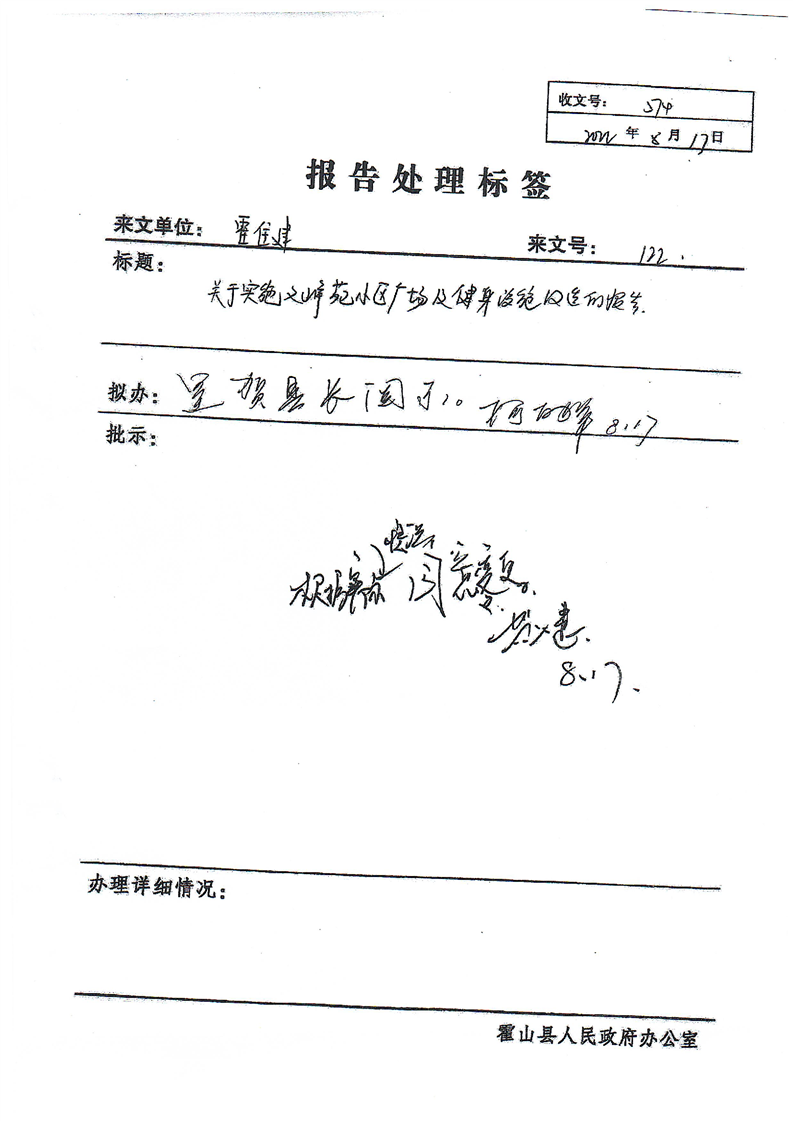 收文号: 574
2022 年 8 月 17 日
报告处理标签
来文单位: 霍住建
来文号: 122.
标题:
关于实施文峰苑小区广场及健身设施改造的报告.
拟办: 呈贺县长阅示。 8.17
批示:
情况
根据 阅 意
8.17.
办理详细情况:
霍山县人民政府办公室